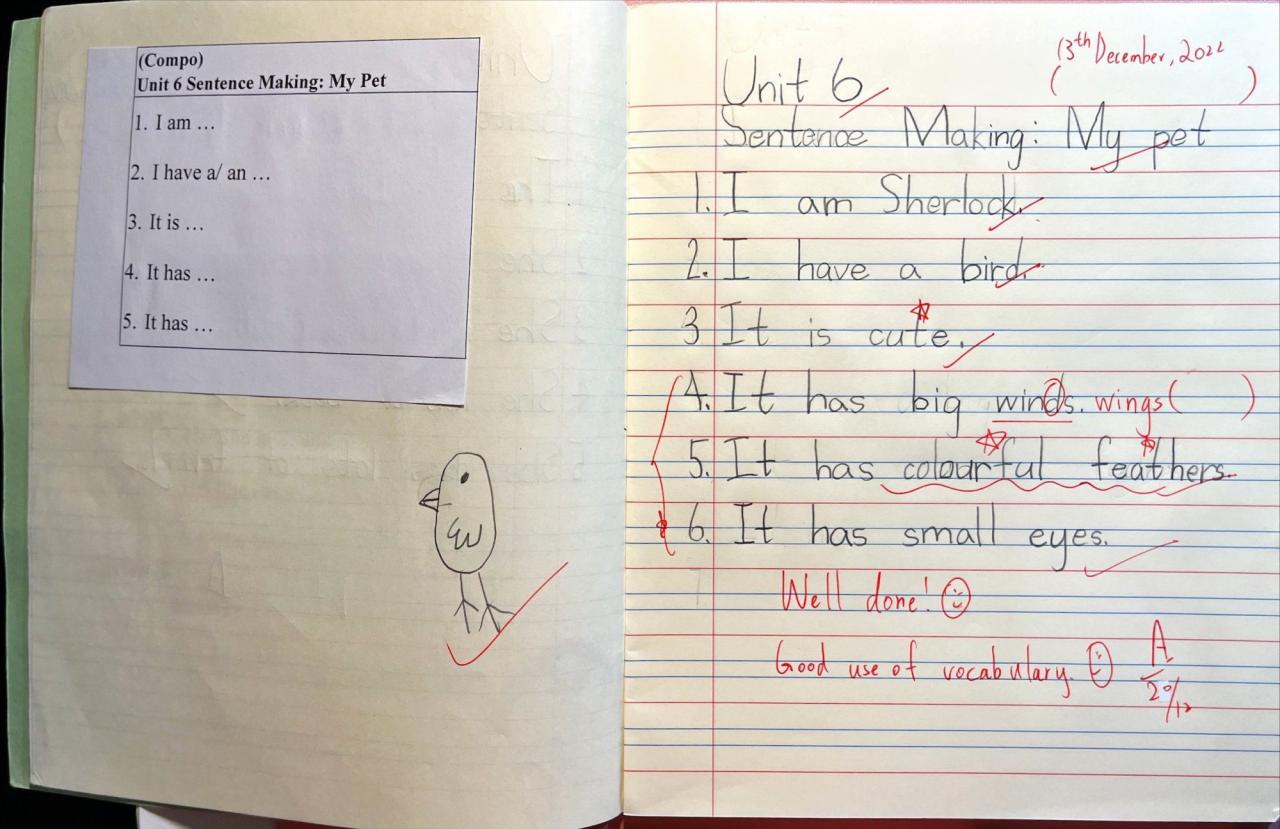 (Compo)
Unit 6 Sentence Making: My Pet
1. I am …
2. I have a/ an …
3. It is …
4. It has …
5. It has …
13th December, 2022
Unit 6 ( )
Sentence Making: My pet
1. I am Sherlock.
2. I have a bird.
3 It is cute.
4. It has big winds. wings ( )
5. It has colourful feathers.
6. It has small eyes.
Well done!
Good use of vocabulary.
A
20/12